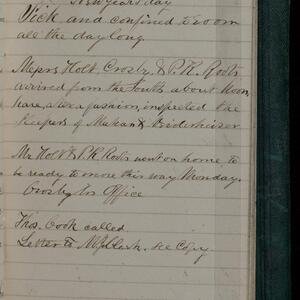 New Years day
Sick and confined to room
all the day long
Messrs Holt, Crosby & P.K. Roots
arived from the South about Noon
have, after a fashion, inspected the
Keepers of Mahan &
Mr Holt & P.K. Roots went on home to
be ready to move this way Monday.
Crosby in Office
Thos. Cook called
Letter to Clark. see Copy